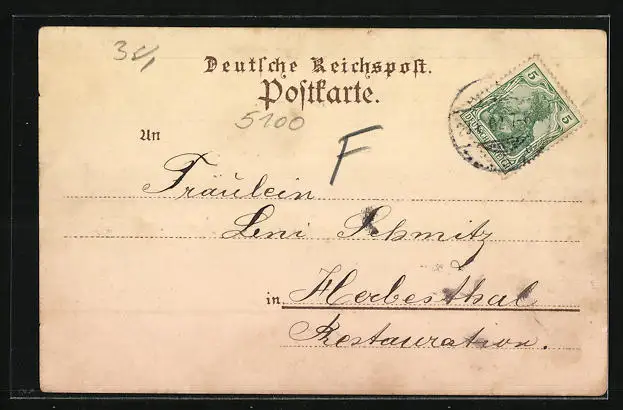 34
Deutsche Reichspost.
Postkarte.
5100
An
F
Fräulein
Leni Schmitz
in Herbesthal
Restauration.
5
5